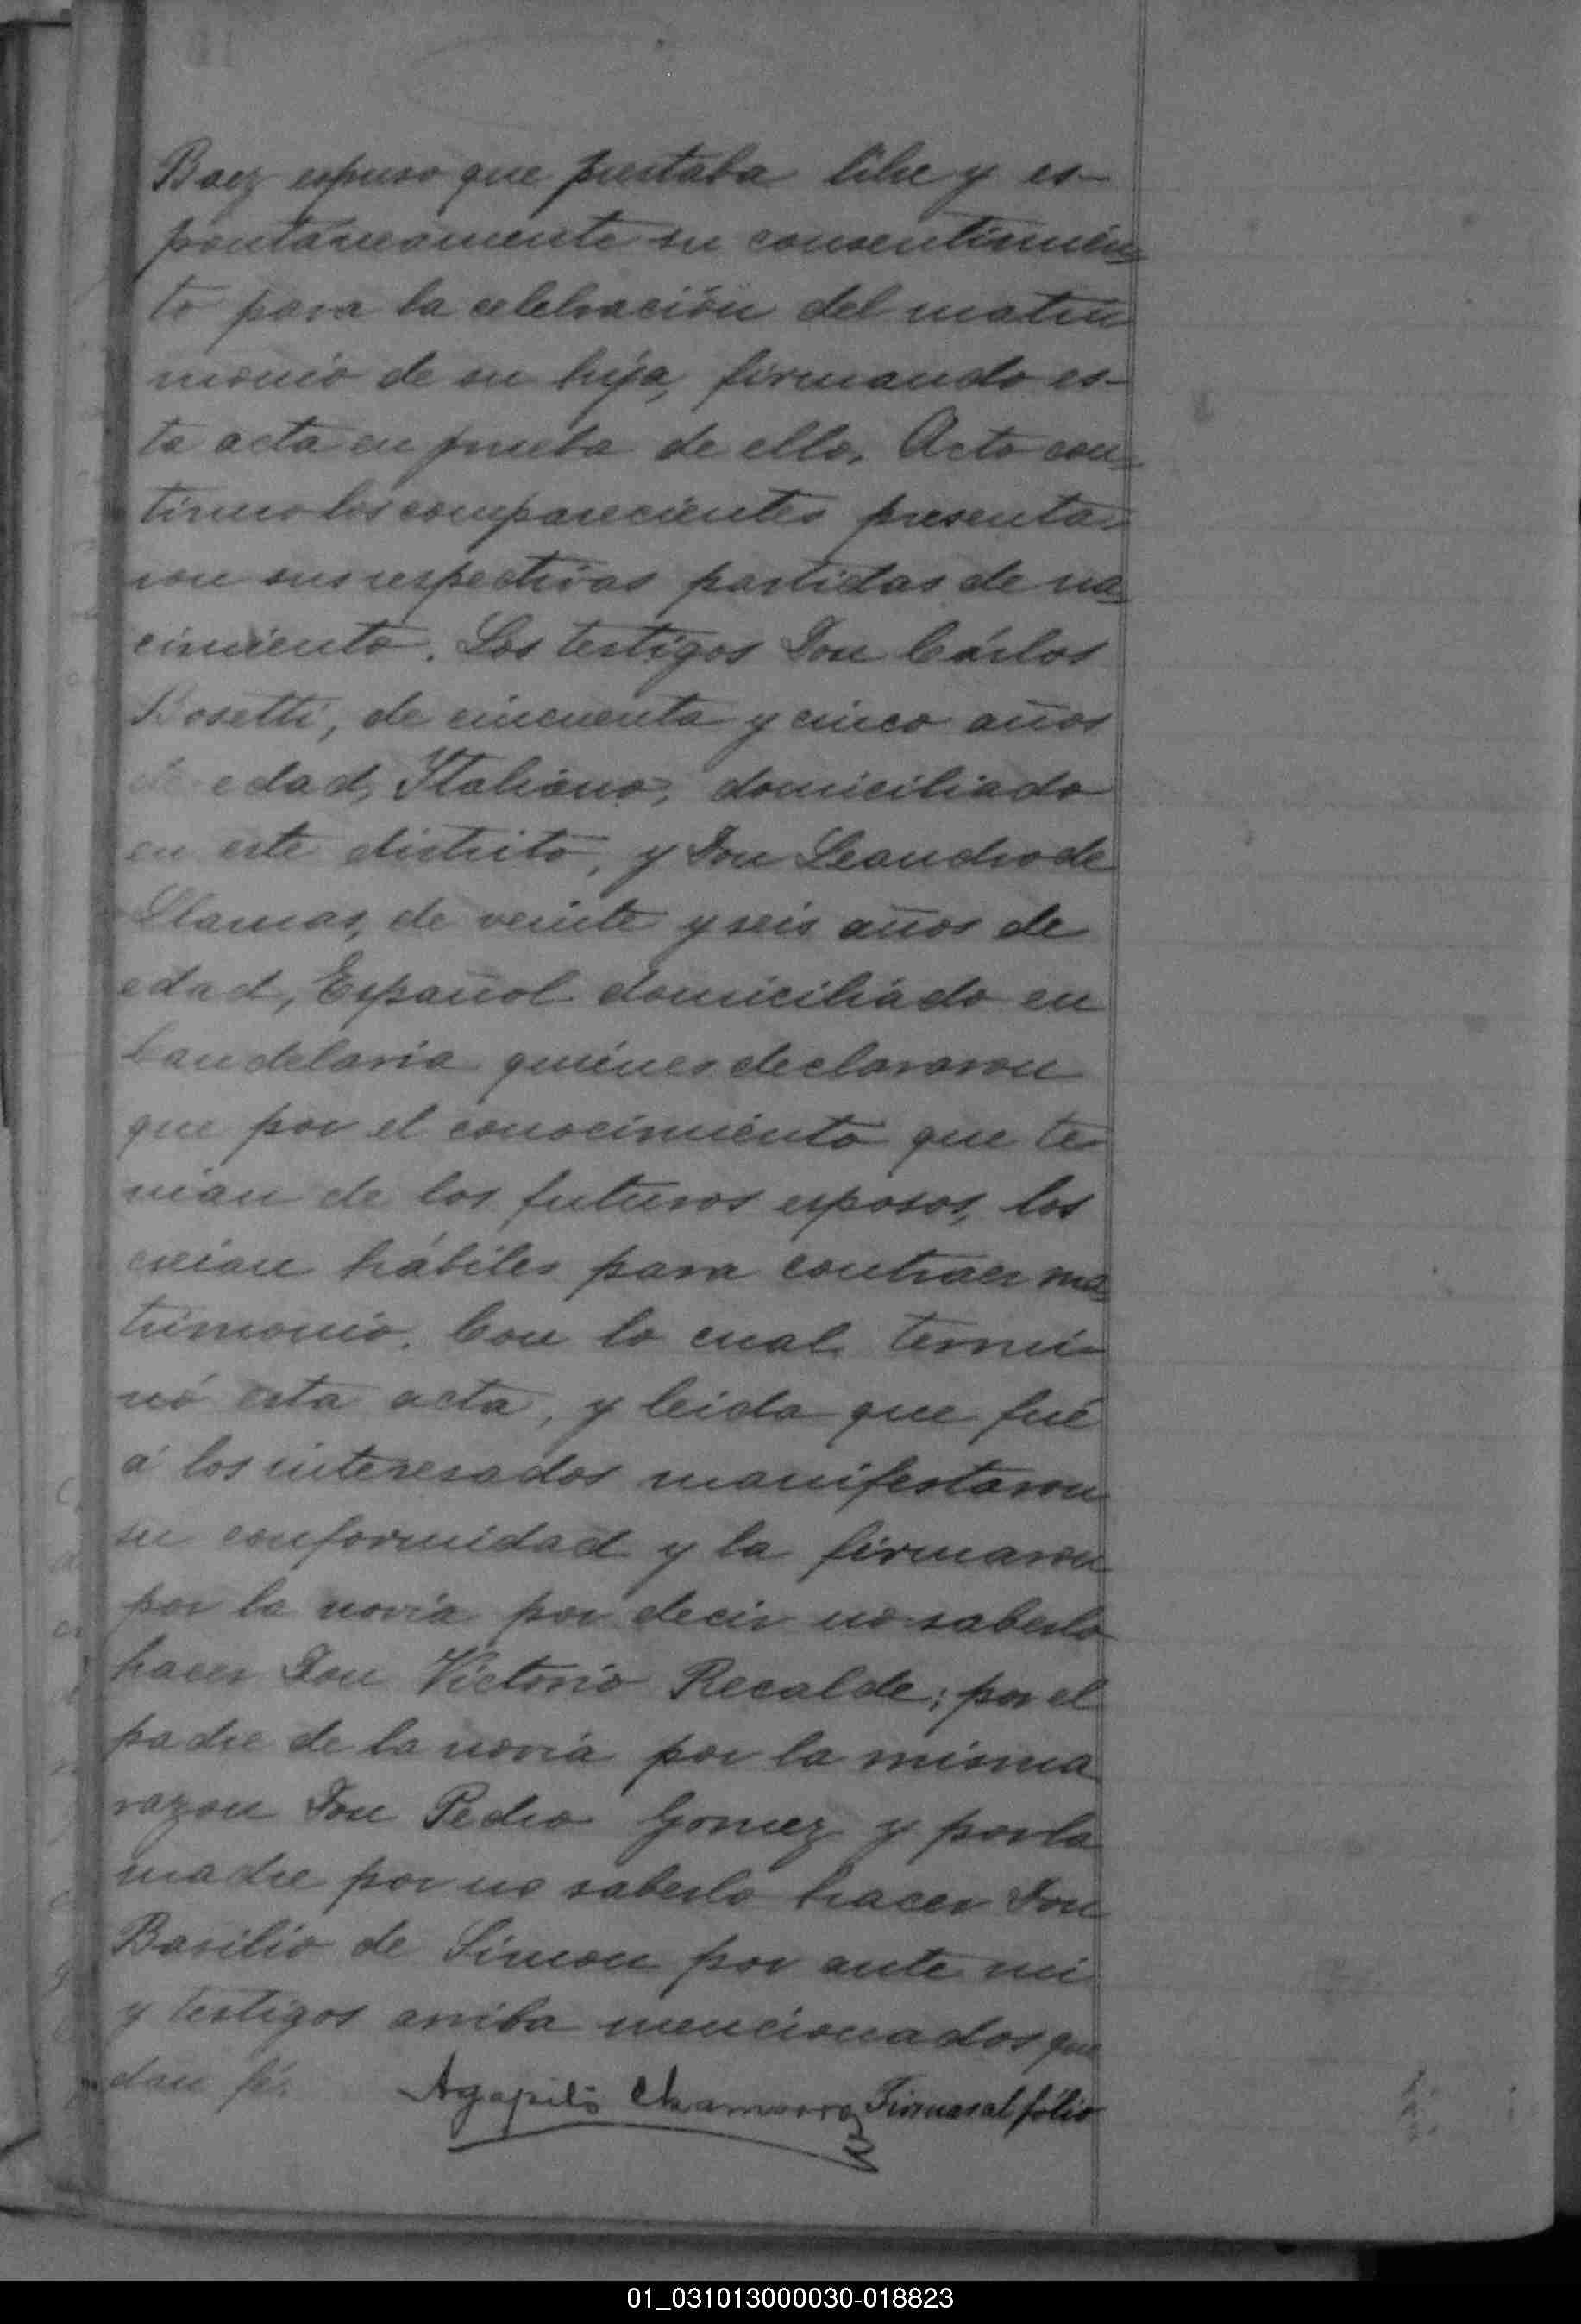 Baez espuso que prestaba libre y es-
pontaneamente su consentimien-
to para la celebración del matri-
monio de su hija, firmando es-
ta acta en prueba de ello. Acto con-
tinuo los comparecientes presenta-
ron sus respectivas partidas de na-
cimiento. Los testigos Don Cárlos
Rosetti, de cincuenta y cinco años
de edad, Italiano, domiciliado
en este distrito, y Don Leandro de
Llamas, de veinte y seis años de
edad, Español domiciliado en
Candelaria quiénes declararon
que por el conocimiento que te-
nian de los futuros esposos, los
creian hábiles para contraer ma-
trimonio. Con lo cual termi-
nó esta acta, y leida que fué
á los interesados manifestaron
su conformidad y la firmaron
por la novia por decir no saberlo
hacer Don Victorio Recalde; por el
padre de la novia por la misma
razon Don Pedro Gomez y por la
madre por no saberlo hacer Don
Basilio de Simon por ante mi
y testigos arriba mencionados que
dan fé. Agapito Chamorro Firmas al fólio
01_031013000030-018823